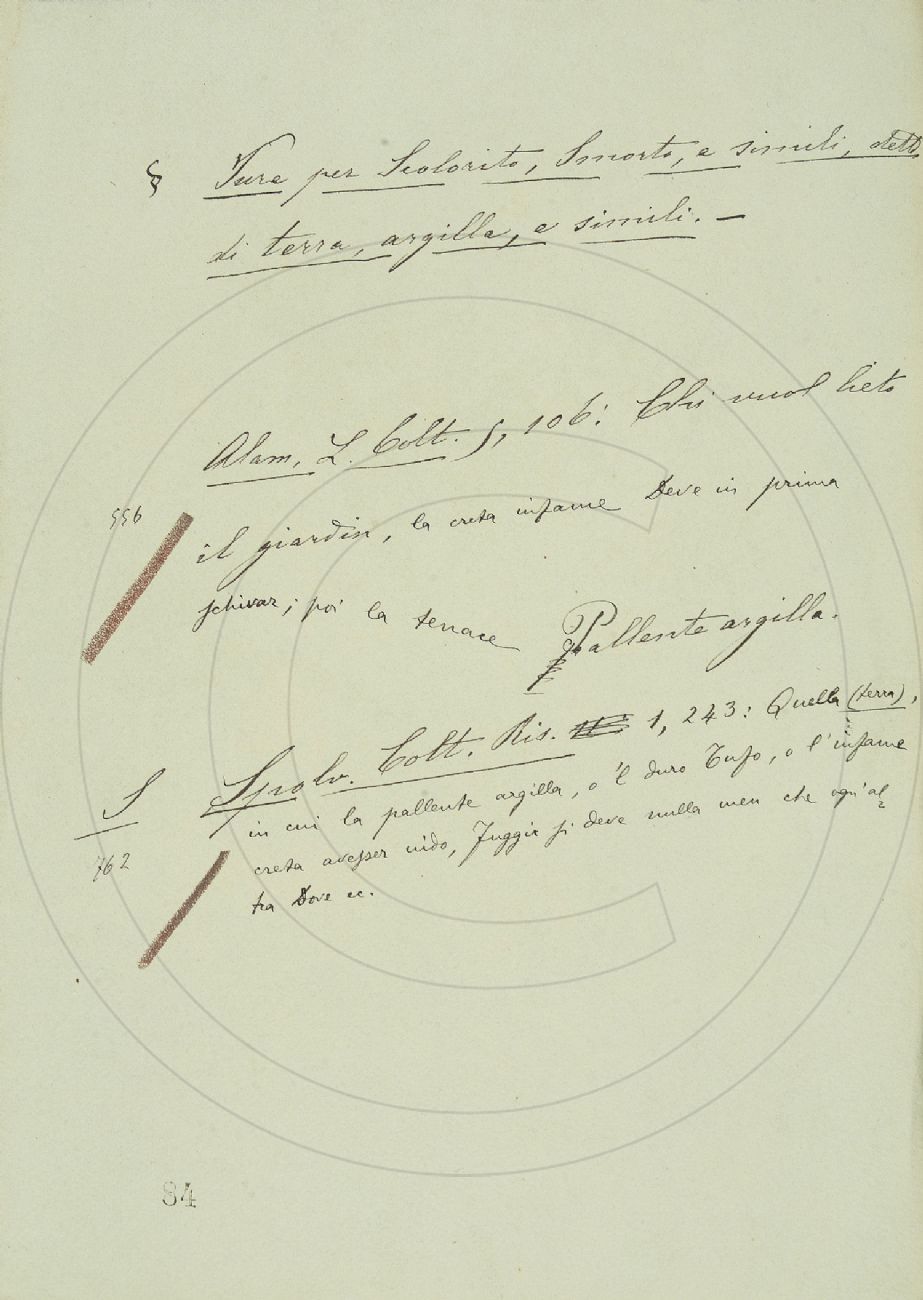 § Pure per Scolorito, Smorto, e simili, detto
di terra, argilla, e simili. —
Alam. L. Colt. 5, 106: Chi vuol lieto
556
il giardin, la creta infame Deve in prima
schivar; poi la tenace Pallente argilla.
S Spolv. Colt. Ris. 1, 243: Quella (terra),
in cui la pallente argilla, o 'l duro Tufo, o l'infame
762 creta avesser nido, Fuggir si deve nulla men che ogn'al-
tra Dove ec.
84